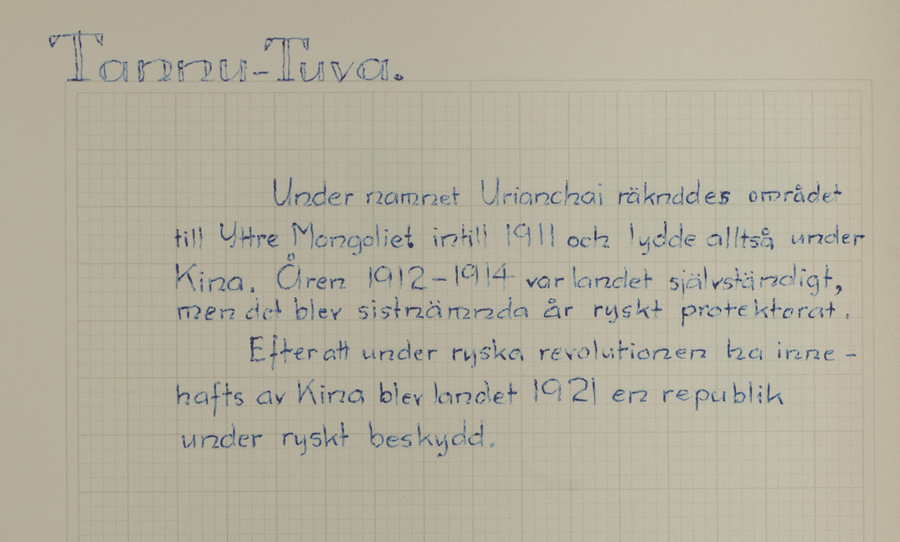 Tannu-Tuva.
Under namnet Urianchai räknddes området
till Yttre Mongoliet intill 1911 och lydde alltså under
Kina. Åren 1912-1914 var landet självständigt,
men det blev sistnämnda år ryskt protektorat.
Efter att under ryska revolutionen ha inne-
hafts av Kina blev landet 1921 en republik
under ryskt beskydd.